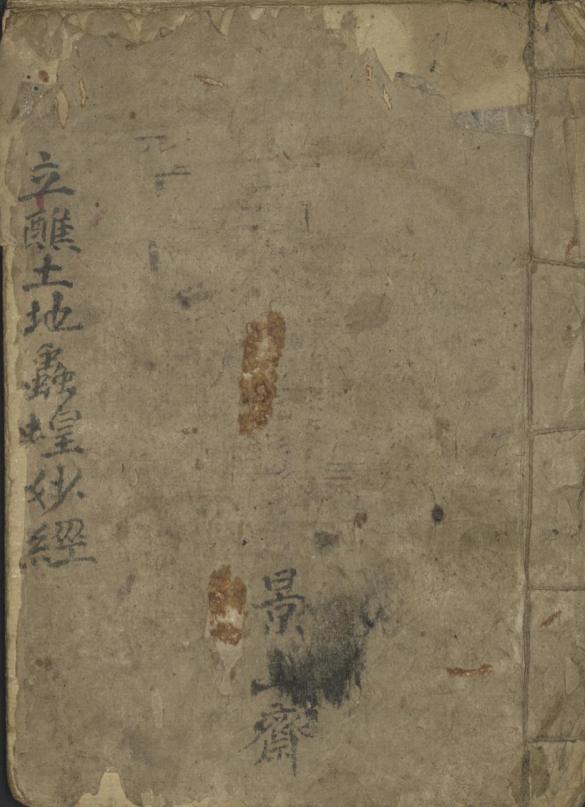 立醮土地蟲蝗妙經
景
齋